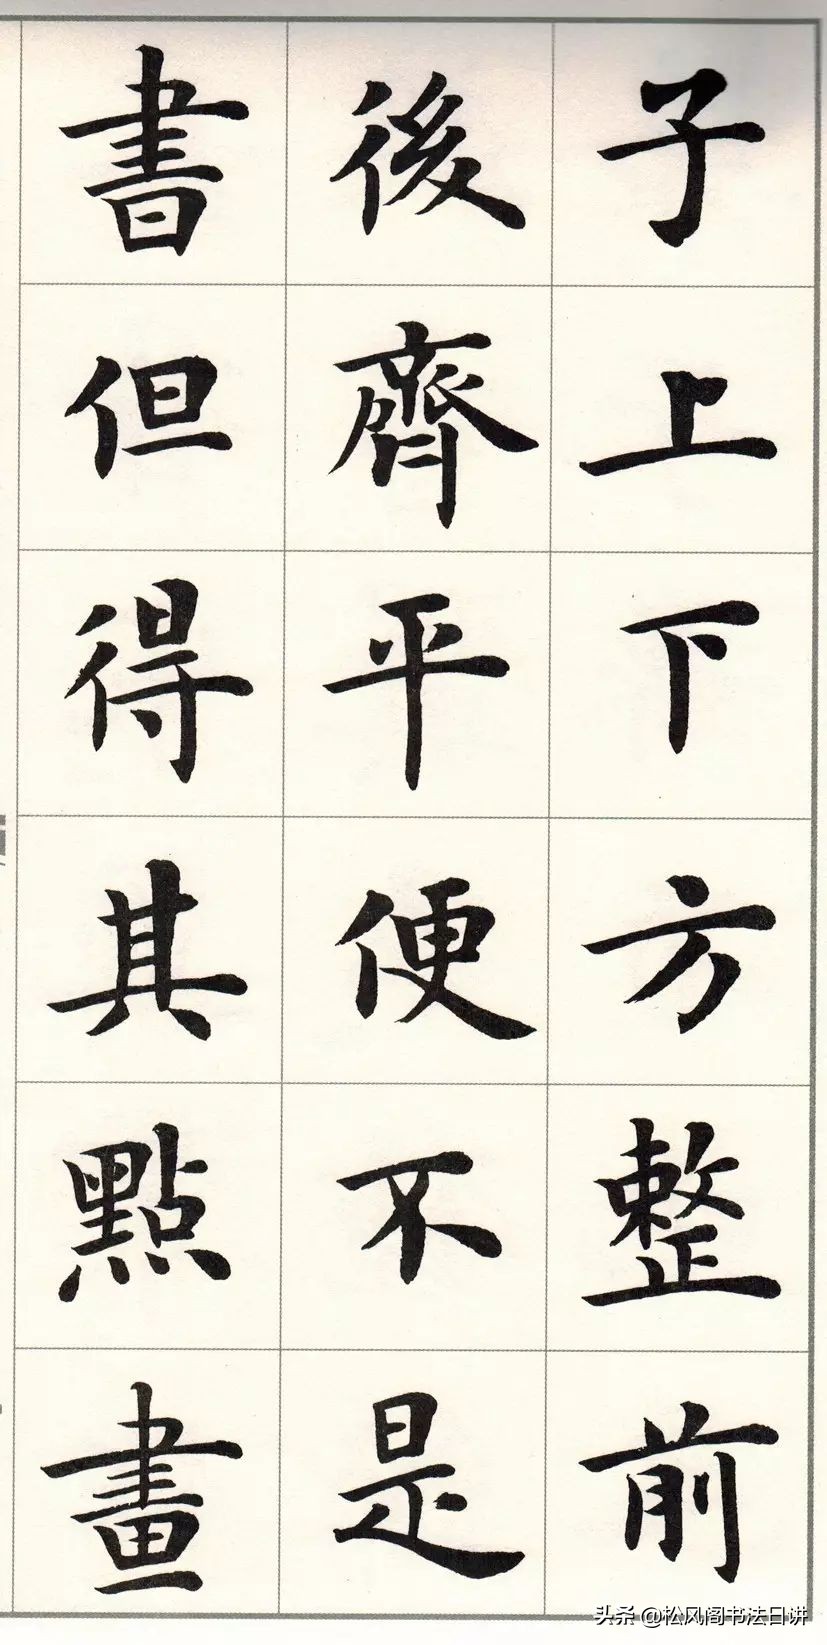 子上下方整前
後齊平便不是
書但得其點畫
头条 @松风阁书法日讲